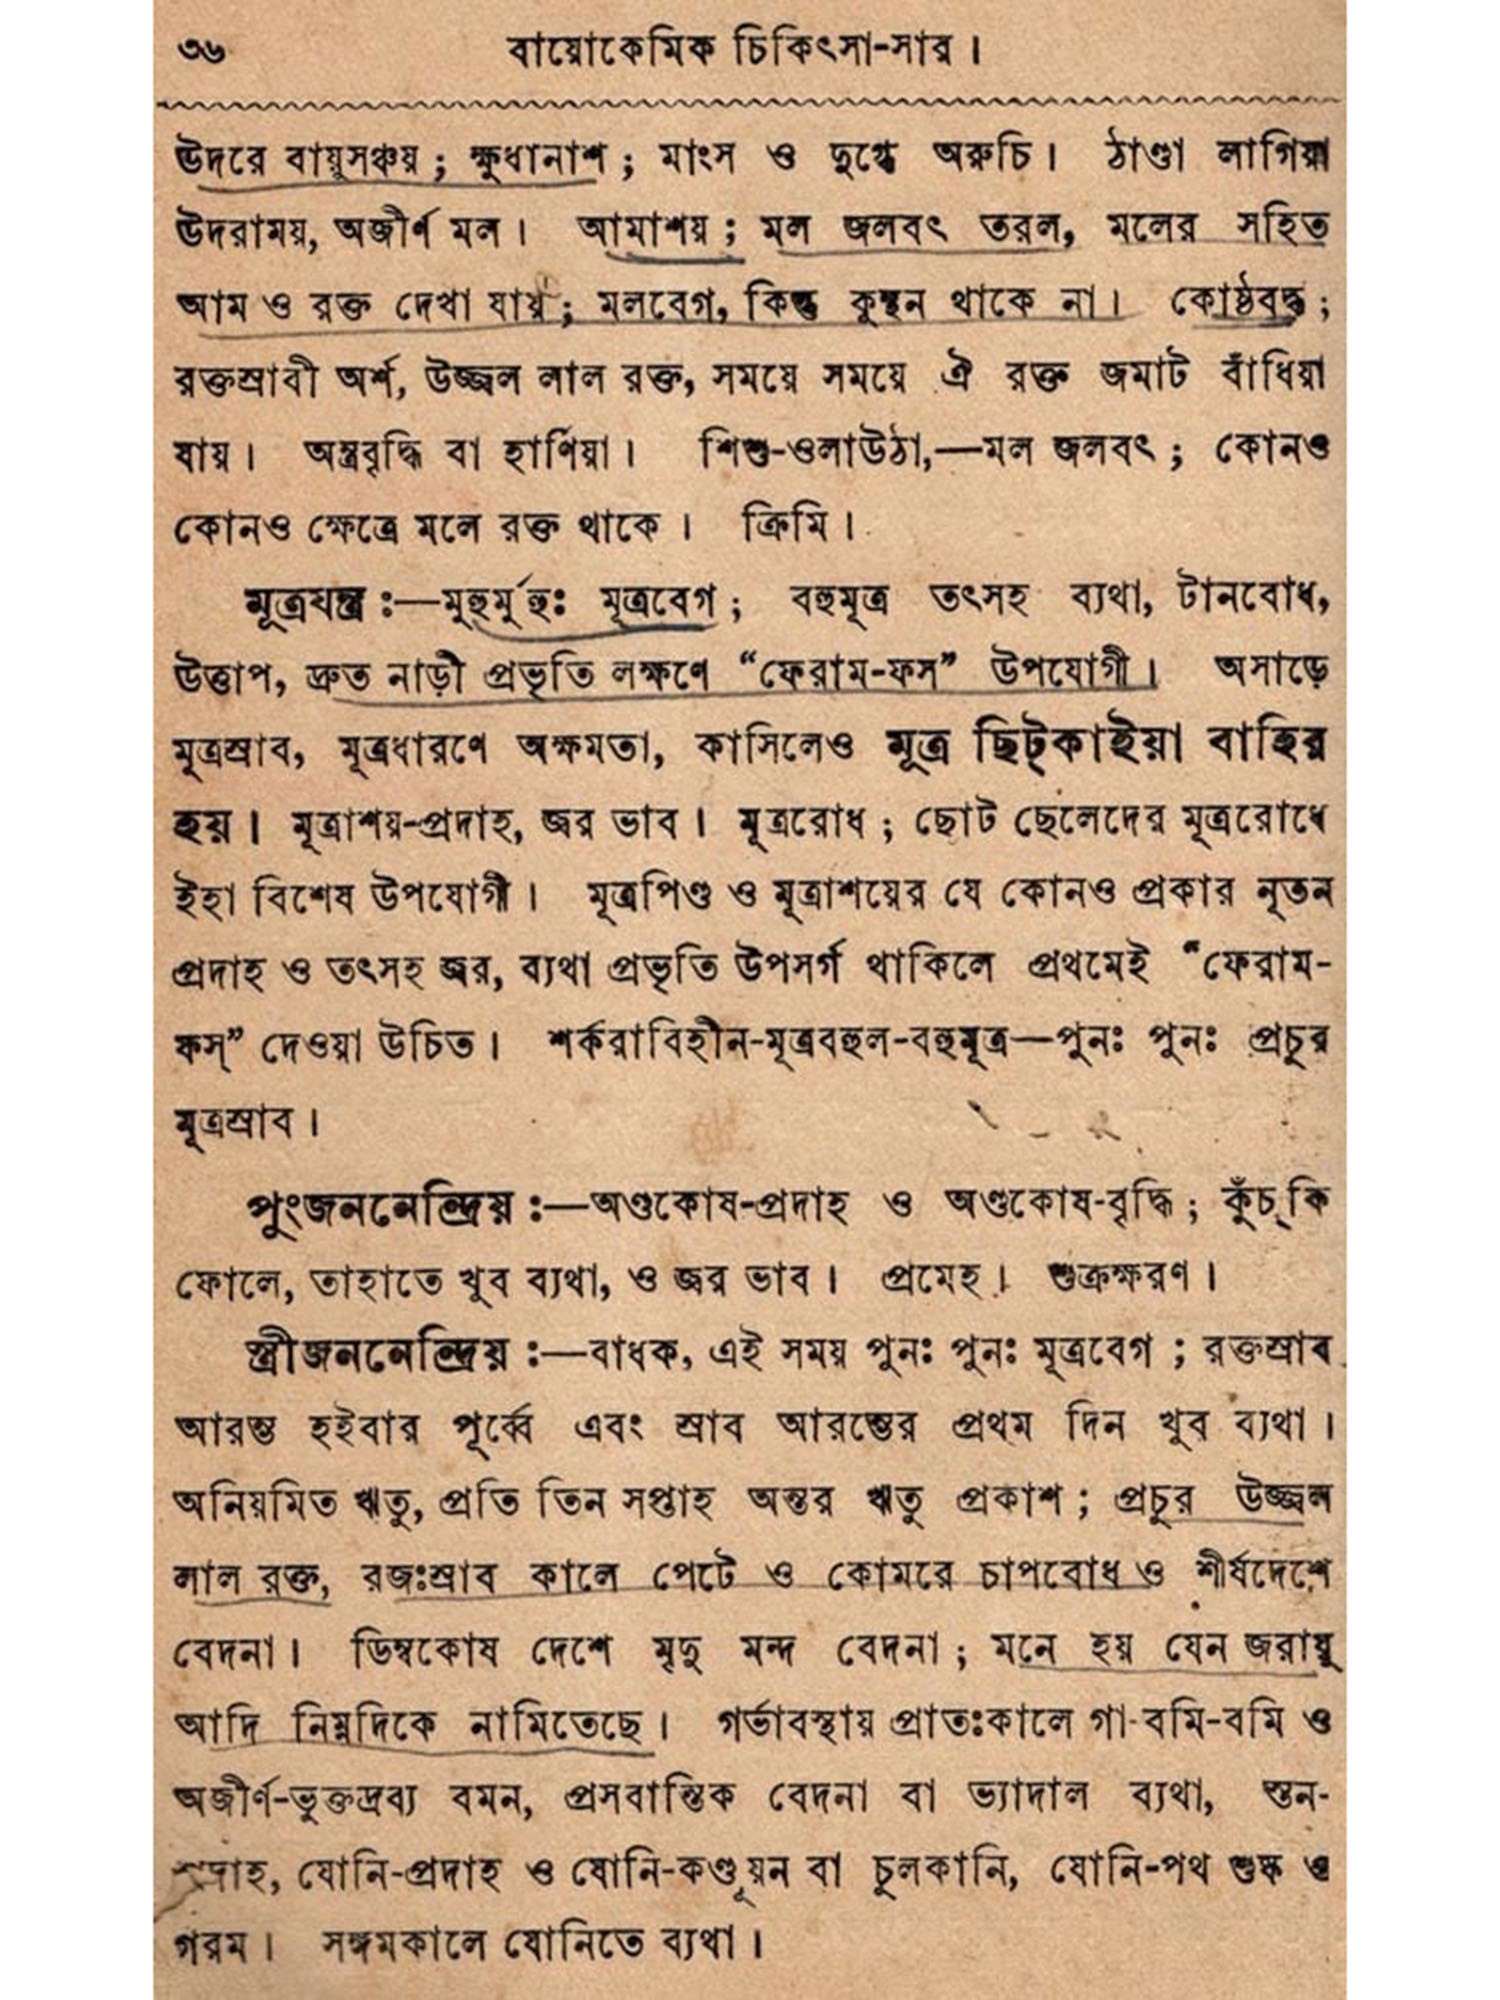 ৩৬ বায়োকেমিক চিকিৎসা-সার।
উদরে বায়ুসঞ্চয় ; ক্ষুধানাশ ; মাংস ও দুগ্ধে অরুচি। ঠাণ্ডা লাগিয়া
উদরাময়, অজীর্ণ মল। আমাশয় ; মল জলবৎ তরল, মলের সহিত
আম ও রক্ত দেখা যায় ; মলবেগ, কিন্তু কুন্থন থাকে না। কোষ্ঠবদ্ধ ;
রক্তস্রাবী অর্শ, উজ্জ্বল লাল রক্ত, সময়ে সময়ে ঐ রক্ত জমাট বাঁধিয়া
যায়। অন্ত্রবৃদ্ধি বা হার্ণিয়া। শিশু-ওলাউঠা,—মল জলবৎ ; কোনও
কোনও ক্ষেত্রে মলে রক্ত থাকে। ক্রিমি।
মূত্রযন্ত্র :—মুহুর্মুহুঃ মূত্রবেগ ; বহুমূত্র তৎসহ ব্যথা, টানবোধ,
উত্তাপ, দ্রুত নাড়ী প্রভৃতি লক্ষণে “ফেরাম-ফস” উপযোগী। অসাড়ে
মূত্রস্রাব, মূত্রধারণে অক্ষমতা, কাসিলেও মূত্র ছিট্‌কাইয়া বাহির
হয়। মূত্রাশয়-প্রদাহ, জ্বর ভাব। মূত্ররোধ ; ছোট ছেলেদের মূত্ররোধে
ইহা বিশেষ উপযোগী। মূত্রপিণ্ড ও মূত্রাশয়ের যে কোনও প্রকার নূতন
প্রদাহ ও তৎসহ জ্বর, ব্যথা প্রভৃতি উপসর্গ থাকিলে প্রথমেই “ফেরাম-
ফস্” দেওয়া উচিত। শর্করাবিহীন-মূত্রবহুল-বহুমূত্র—পুনঃ পুনঃ প্রচুর
মূত্রস্রাব।
পুংজননেন্দ্রিয় :—অণ্ডকোষ-প্রদাহ ও অণ্ডকোষ-বৃদ্ধি ; কুঁচ্‌কি
ফোলে, তাহাতে খুব ব্যথা, ও জ্বর ভাব। প্রমেহ। শুক্রক্ষরণ।
স্ত্রীজননেন্দ্রিয় :—বাধক, এই সময় পুনঃ পুনঃ মূত্রবেগ ; রক্তস্রাব
আরম্ভ হইবার পূর্ব্বে এবং স্রাব আরম্ভের প্রথম দিন খুব ব্যথা।
অনিয়মিত ঋতু, প্রতি তিন সপ্তাহ অন্তর ঋতু প্রকাশ ; প্রচুর উজ্জ্বল
লাল রক্ত, রজঃস্রাব কালে পেটে ও কোমরে চাপবোধ ও শীর্ষদেশে
বেদনা। ডিম্বকোষ দেশে মৃদু মন্দ বেদনা ; মনে হয় যেন জরায়ু
আদি নিম্নদিকে নামিতেছে। গর্ভাবস্থায় প্রাতঃকালে গা-বমি-বমি ও
অজীর্ণ-ভুক্তদ্রব্য বমন, প্রসবান্তিক বেদনা বা ভ্যাদাল ব্যথা, স্তন-
প্রদাহ, যোনি-প্রদাহ ও যোনি-কণ্ডূয়ন বা চুলকানি, যোনি-পথ শুষ্ক ও
গরম। সঙ্গমকালে যোনিতে ব্যথা।